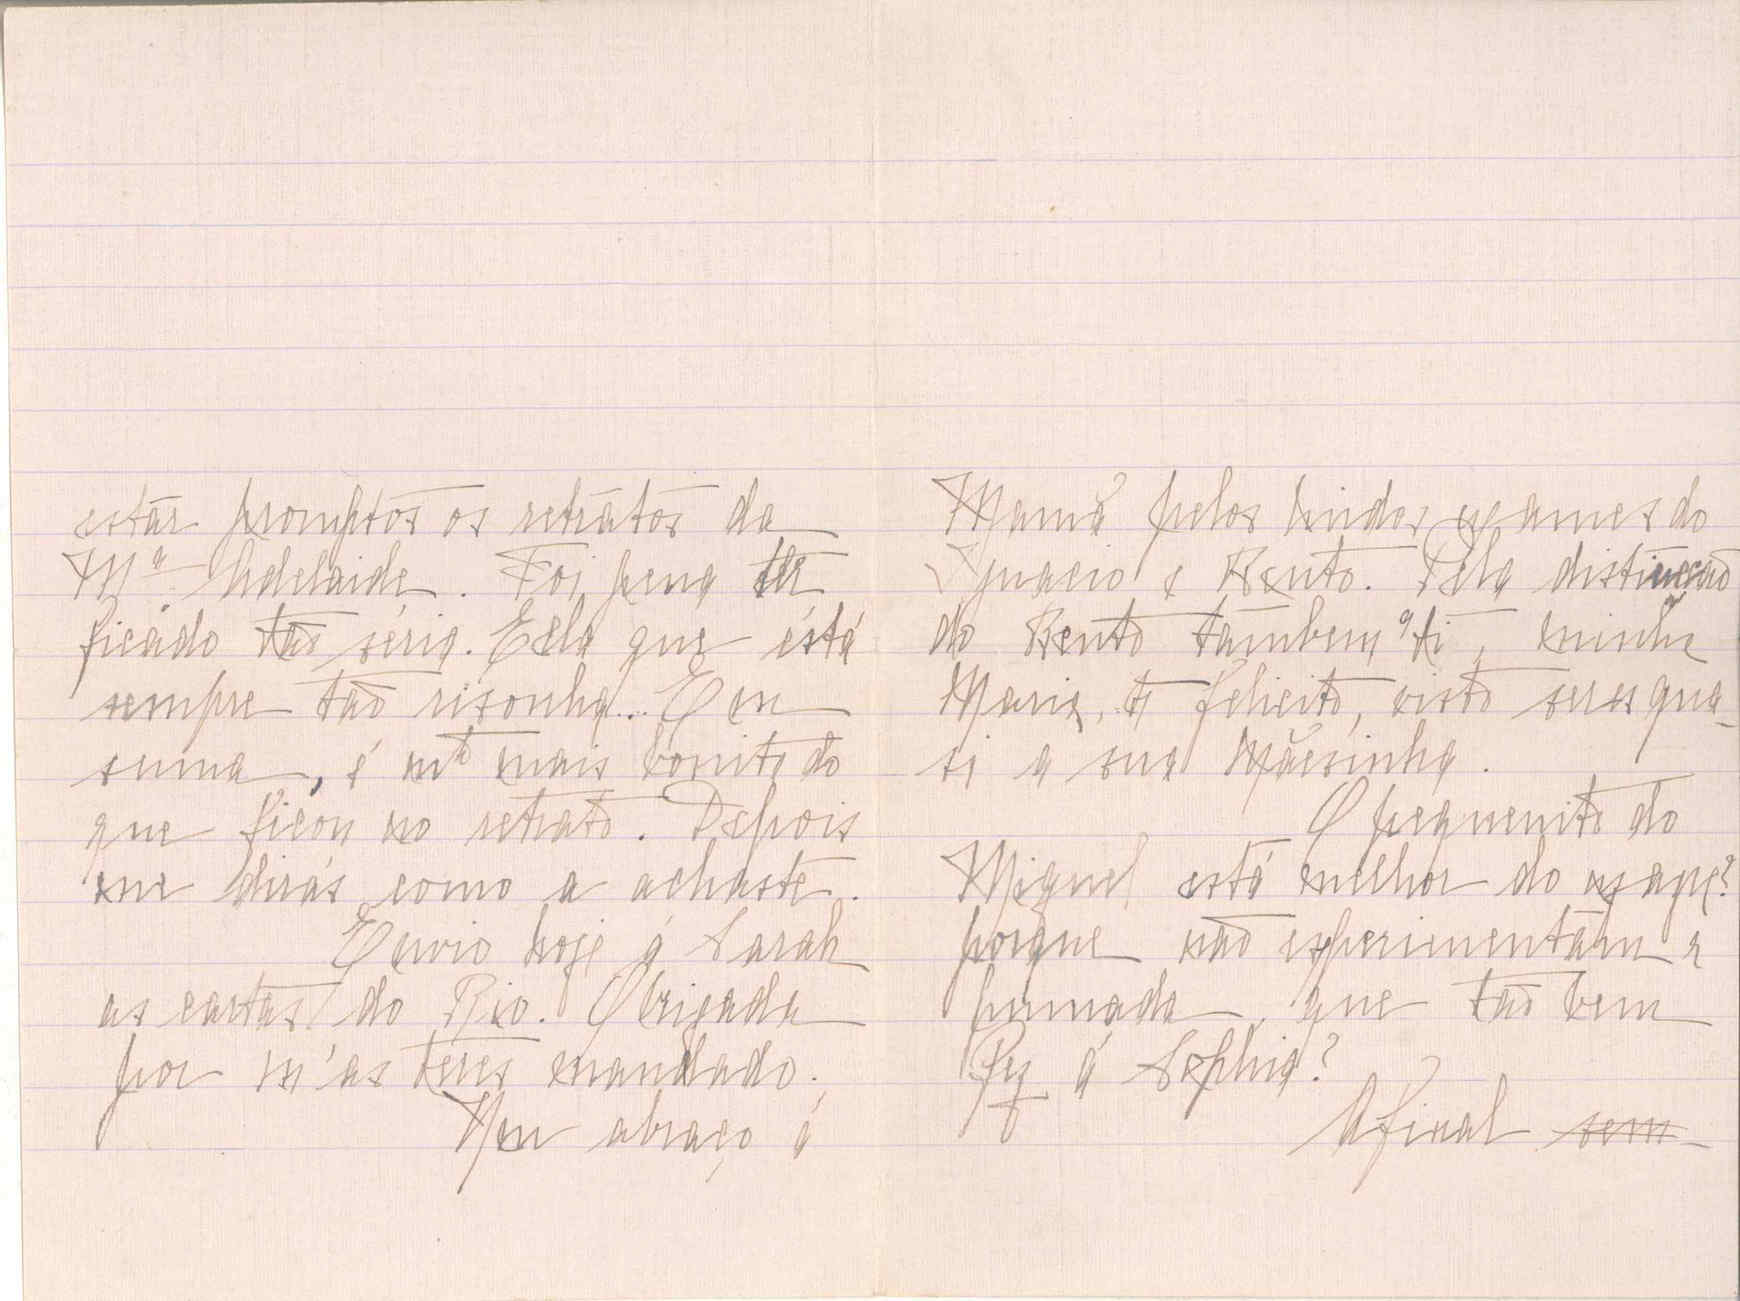 estár promptos os retratos da
Mª Adelaide. Foi pena ter
ficado tão séria. Ella que está
sempre tão risonha... Em
summa, é mto mais bonita do
que ficou no retrato. Depois
me dirás como a achaste.
Envio hoje á Sarah
as cartas do Rio. Obrigada
por m'as teres mandado.
Meu abraço á
Mamã pelos lindos exames do
Ignacio e Bento. Pela distincção
do Bento tambem a ti, minha
Maria, te felicito, visto seres qua-
si a sua Mãesinha.
O pequenito do
Miguel está melhor do
porque não experimentam a
pumada, que tão bem
fez á Sophia?
Afinal sem-